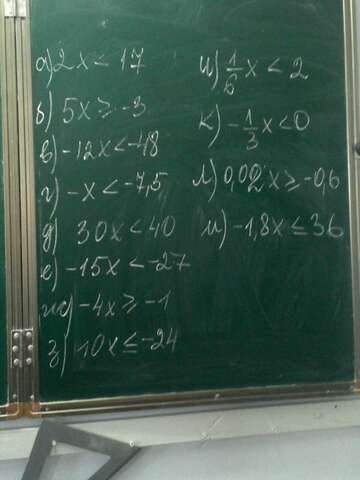 а) 2x < 17
б) 5x ≥ -3
в) -12x < -48
г) -x < -7,5
д) 30x < 40
е) -15x < -27
ж) -4x ≥ -1
з) 10x ≤ -24
и) 1/6 x < 2
к) -1/3 x < 0
л) 0,02x ≥ -0,6
м) -1,8x ≤ 36